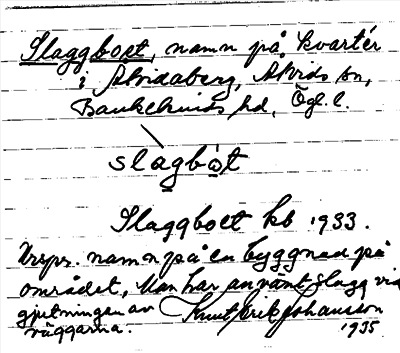 Slaggboet, namn på kvartér
i Åtvidaberg, Åtvids sn,
Bankekinds hd, Ögl. l.
slagbo̱t
Slaggboet kb 1933.
Urspr. namn på en byggnad på
området. Man har använt slagg vid
gjutningen av Knut Erik Johansson
väggarna. 1935